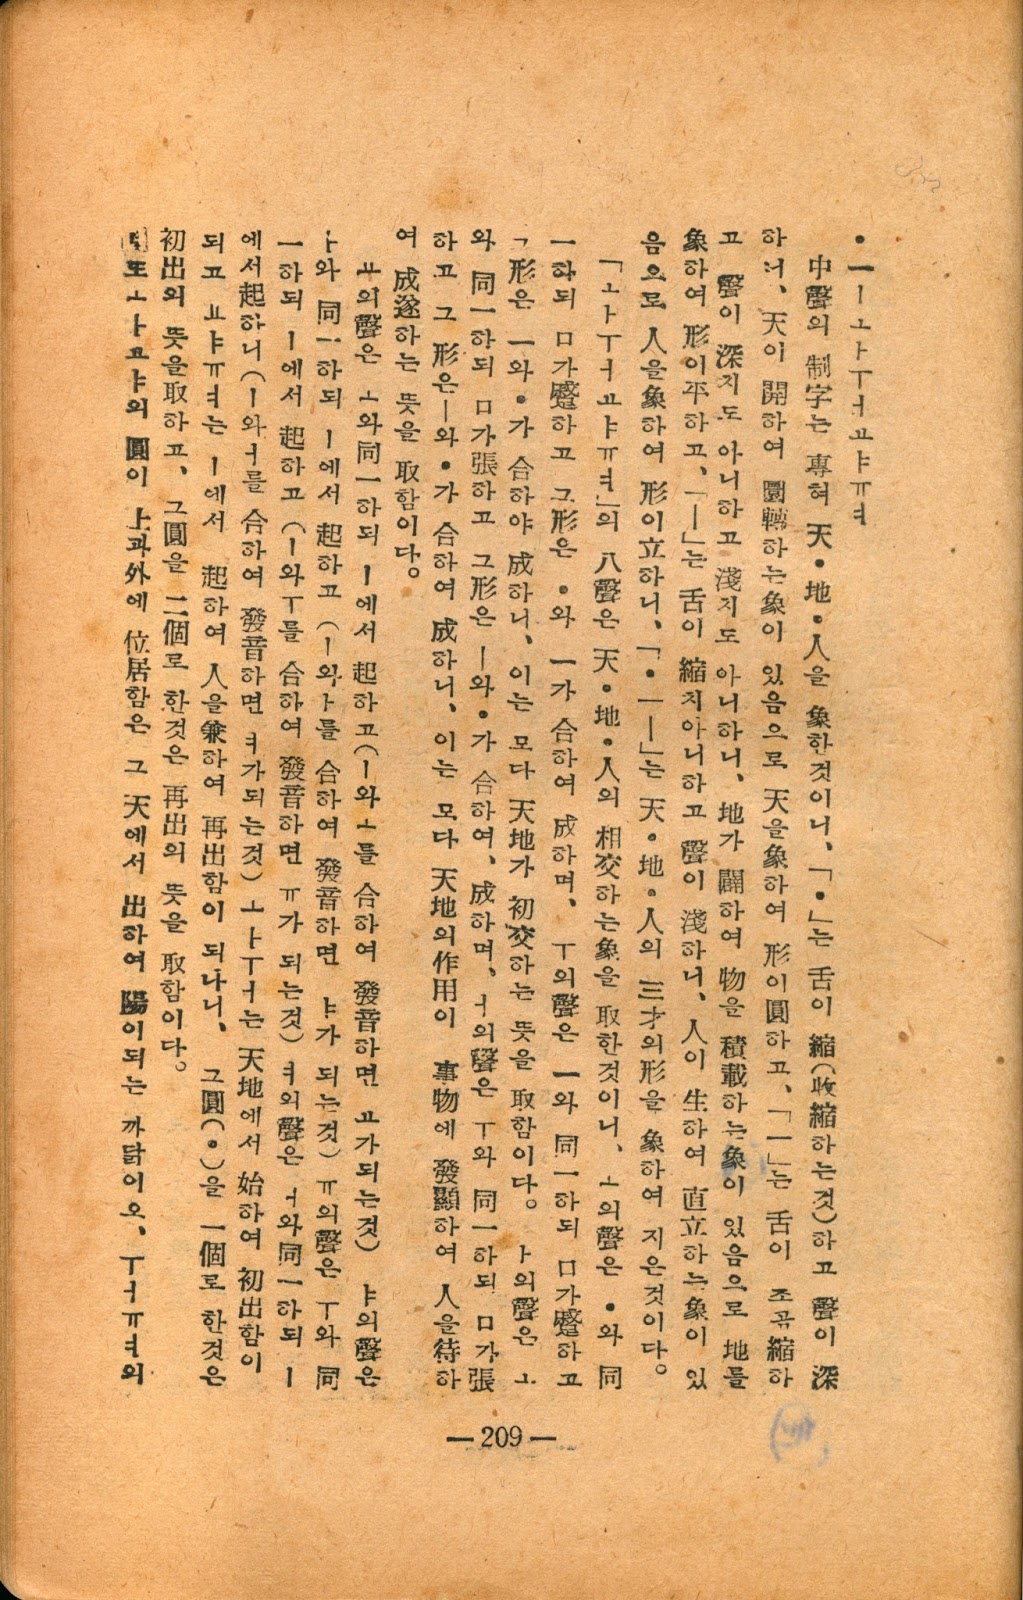 •ㅡㅣㅗㅏㅜㅓㅛㅑㅠㅕ
中聲의 制字는 專혀 天•地•人을 象한것이니、「•」는 舌이 縮(收縮하는것)하고 聲이 深
하너、天이 開하여 圜轉하는象이 있음으로 天을象하여 形이圓하고、「ㅡ」는 舌이 조곰縮하
고 聲이 深지도 아니하고 淺지도 아니하니、地가 闢하여 物을 積載하는象이 있음으로 地를
象하여 形이平하고、「ㅣ」는 舌이 縮치아니하고 聲이 淺하니、人이 生하여 直立하는象이 있
음으로 人을象하여 形이立하니、「•ㅡㅣ」는 天•地•人의 三才의形을 象하여 지은것이다。
「ㅗㅏㅜㅓㅛㅑㅠㅕ」의 八聲은 天•地•人의 相交하는象을 取한것이니、ㅗ의聲은 •와 同
一하되 口가蹙하고 그形은 •와 ㅡ가 合하여 成하며、ㅜ의聲은 ㅡ와 同一하되 口가蹙하고
그形은 ㅡ와•가 合하야 成하니、이는 모다 天地가 初交하는 뜻을 取함이다。ㅏ의聲은 ㅗ
와 同一하되 口가張하고 그形은 ㅣ와•가 合하여、成하며、ㅓ의聲은 ㅜ와 同一하되 口가張
하고 그 形은ㅣ와•가 合하여 成하니、이는 모다 天地의作用이 事物에 發顯하여 人을待하
여 成遂하는 뜻을 取함이다。
ㅛ의聲은 ㅗ와同一하되 ㅣ에서 起하고(ㅣ와ㅗ를 合하여 發音하면 ㅛ가되는것) ㅑ의聲은
ㅏ와 同一하되 ㅣ에서 起하고 (ㅣ와ㅏ를 合하여 發音하면 ㅑ가 되는것) ㅠ의聲은 ㅜ와 同
一하되 ㅣ에서 起하고(ㅣ와ㅜ를 合하여 發音하면 ㅠ가 되는것) ㅕ의聲은 ㅓ와同一하되 ㅣ
에서起하니(ㅣ와ㅓ를 合하여 發音하면 ㅕ가되는것) ㅗㅏㅜㅓ는 天地에서 始하여 初出함이
되고 ㅛㅑㅠㅕ는 ㅣ에서 起하여 人을兼하여 再出함이 되나니、그圓(•)을 一個로 한것은
初出의 뜻을取하고、그圓을 二個로 한것은 再出의 뜻을 取함이다。
또ㅗㅏㅛㅑ의 圓이 上과外에 位居함은 그 天에서 出하여 陽이되는 까닭이오、ㅜㅓㅠㅕ의
—209—